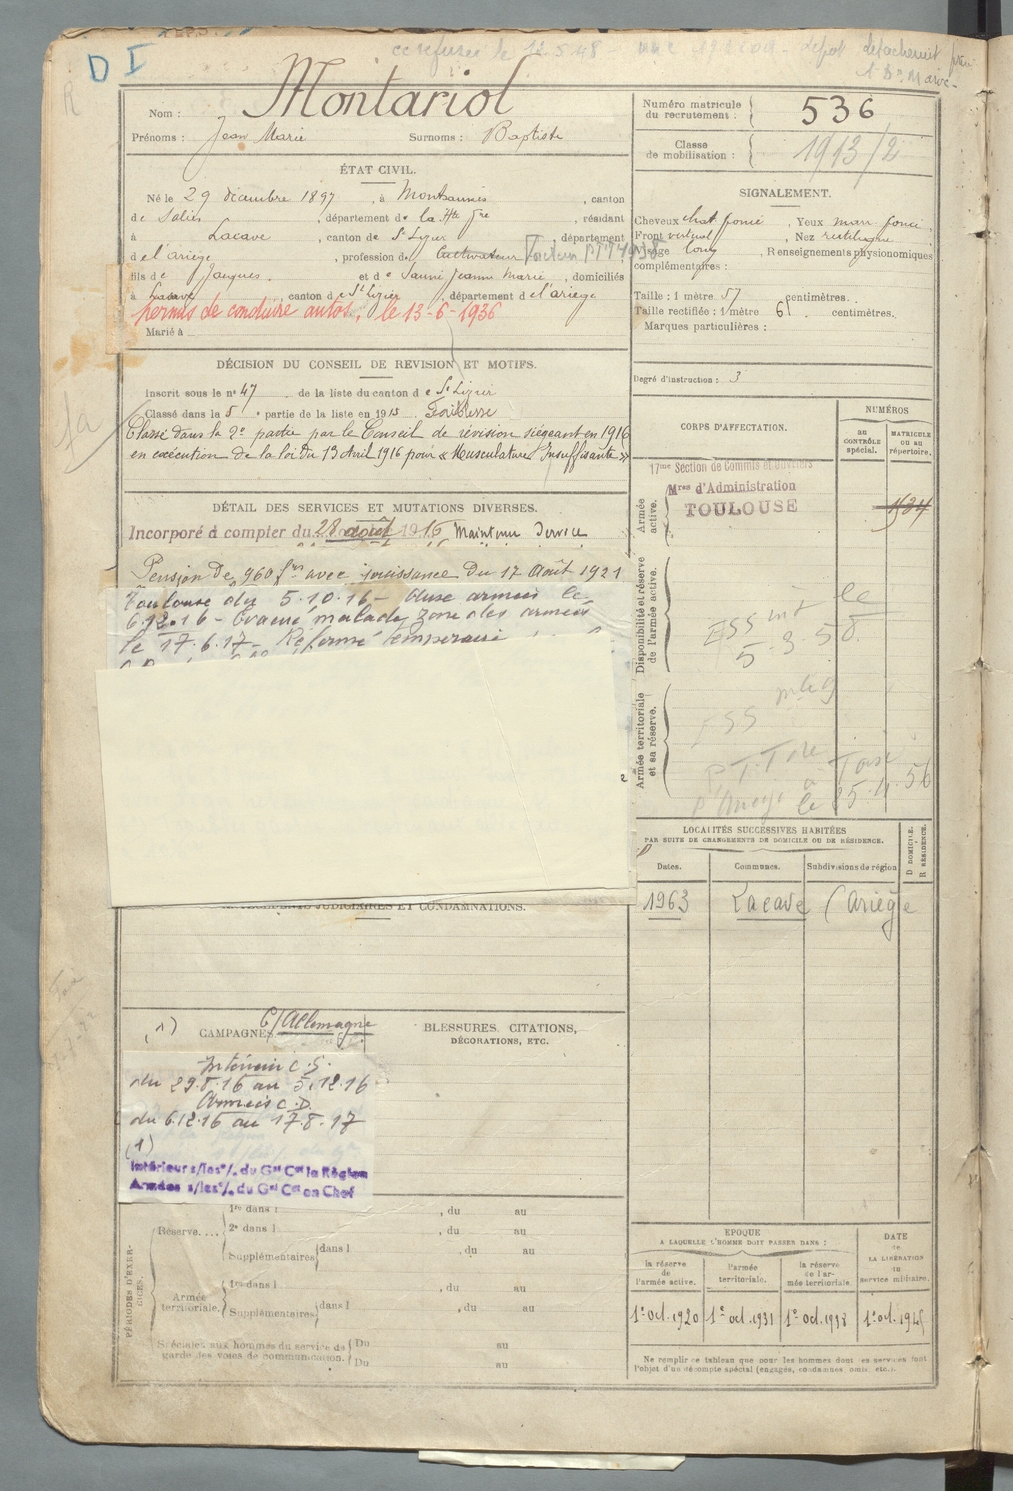 D I
ce refusée le 12.5.48
Nom : Montariol
Prénoms : Jean Marie Surnoms : Baptiste
Numéro matricule du recrutement : 536
Classe de mobilisation : 1913/2
ÉTAT CIVIL.
Né le 29 décembre 1897, à Montsaunès, canton
de Salies, département de la Hte Gne, résidant
à Lacave, canton de St Lizier, département
d e l'ariège, profession de Cultivateur Facteur PTT 1938
fils de Jacques. et de Saurié Jeanne Marie, domiciliés
à Lacave, canton de St Lizier, département d e l'ariège
permis de conduire autos, le 13-6-1936
Marié à
SIGNALEMENT.
Cheveux chat. foncé, Yeux marr. foncé
Front vertical, Nez rectiligne
Visage long, Renseignements physionomiques
complémentaires :
Taille : 1 mètre 57 centimètres.
Taille rectifiée : 1 mètre 61 centimètres.
Marques particulières :
Degré d'instruction : 3
DÉCISION DU CONSEIL DE REVISION ET MOTIFS.
Inscrit sous le n° 47 de la liste du canton d e St Lizier
Classé dans la 5e partie de la liste en 1915 Faiblesse
Classé dans la 2e partie par le Conseil de révision siégeant en 1916
en exécution de la loi du 13 Avril 1916 pour « Musculature Insuffisante »
DÉTAIL DES SERVICES ET MUTATIONS DIVERSES.
Incorporé à compter du 28 août 1916 Maintenu Service
Pension de 960 frs avec jouissance du 17 Août 1921
Toulouse du 5.10.16 - Aux armées le
6.12.16 - Évacué malade zone des armées
le 17.6.17 - Réformé temporaire
CORPS D'AFFECTATION.
NUMÉROS
AU CONTRÔLE spécial.
MATRICULE OU AU répertoire.
Armée active.
17me Section de Commis et Ouvriers
Mres d'Administration
TOULOUSE
Disponibilité et réserve de l'armée active.
5-3-58
Armée territoriale et sa réserve.
LOCALITÉS SUCCESSIVES HABITÉES
PAR SUITE DE CHANGEMENTS DE DOMICILE OU DE RÉSIDENCE.
Dates. Communes. Subdivisions de région
D DOMICILE. R RÉSIDENCE.
1963 Lacave (Ariège
ET CONDAMNATIONS.
(1) CAMPAGNES C/Allemagne
BLESSURES, CITATIONS, DÉCORATIONS, ETC.
Intérieur C.S.
du 29.8.16 au 5.12.16
Armées C.D.
du 6.12.16 au 17.8.17
(1)
Intérieur s/les o/. du Gal Ct la Région
Armées s/les o/. du Gal Ct en Chef
PÉRIODES D'EXERCICES.
Réserve....
1re dans l , du au
2e dans l , du au
Supplémentaires dans l , du au
Armée territoriale.
1re dans l , du au
Supplémentaires dans l , du au
Spéciales aux hommes du service de garde des voies de communication.
Du au
Du au
EPOQUE
A LAQUELLE L'HOMME DOIT PASSER DANS :
la réserve de l'armée active.
l'armée territoriale.
la réserve de l'armée territoriale.
DATE de LA LIBÉRATION du service militaire.
1° oct. 1920 1° oct. 1931 1° oct. 1938 1° oct. 1945
Ne remplir ce tableau que pour les hommes dont les services font
l'objet d'un décompte spécial (engagés, condamnés, omis, etc.).